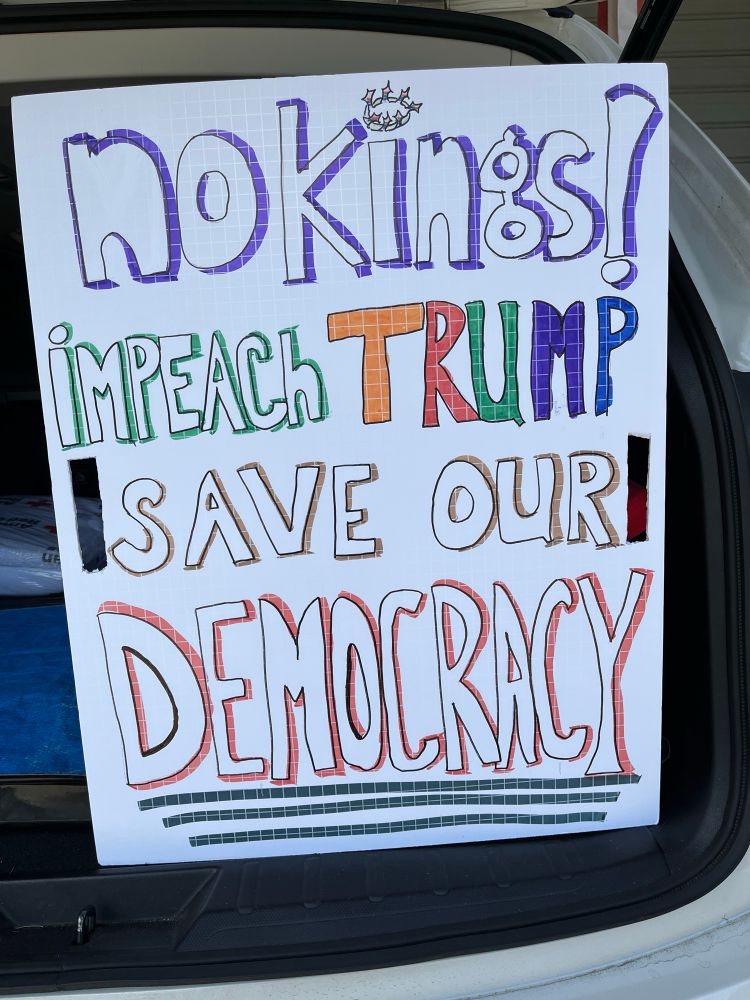 no Kings!
iMPEACh TRUMP
SAVE OUR
DEMOCRACY